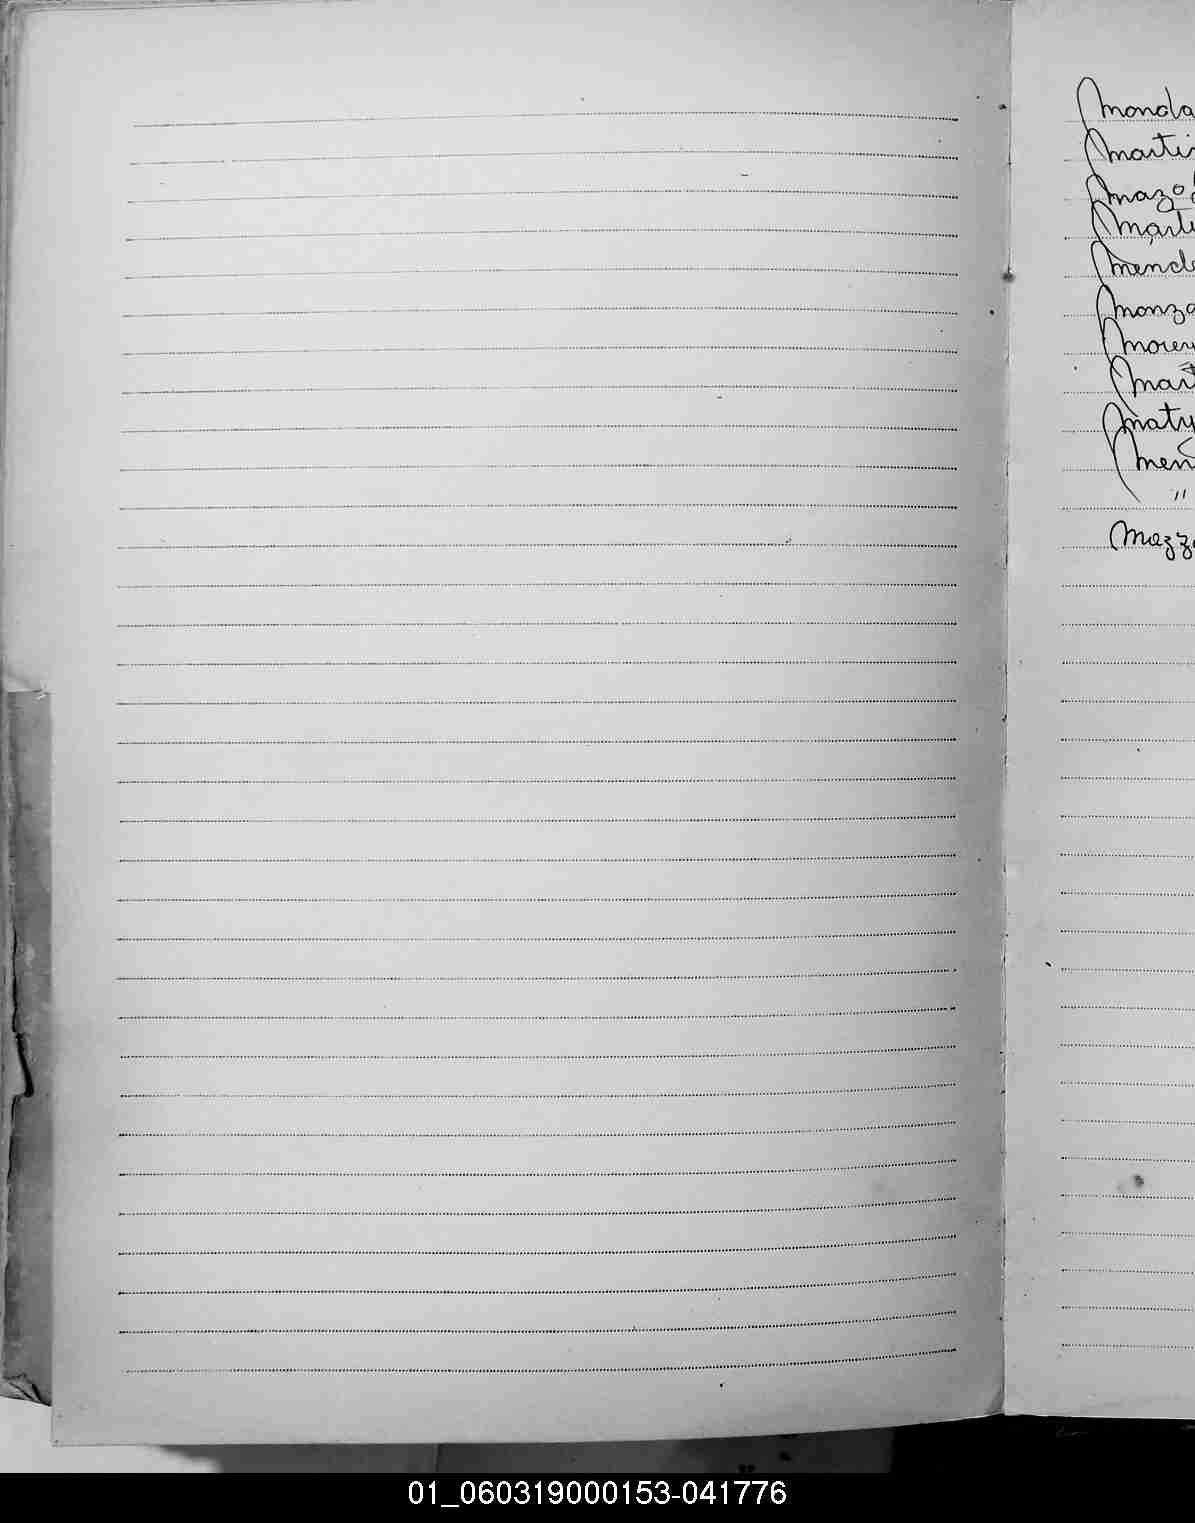 Monda
Marti
Mazo
Marti
Mende
Monza
Morey
Mart
Maty
Men
"
Mazza
01_060319000153-041776